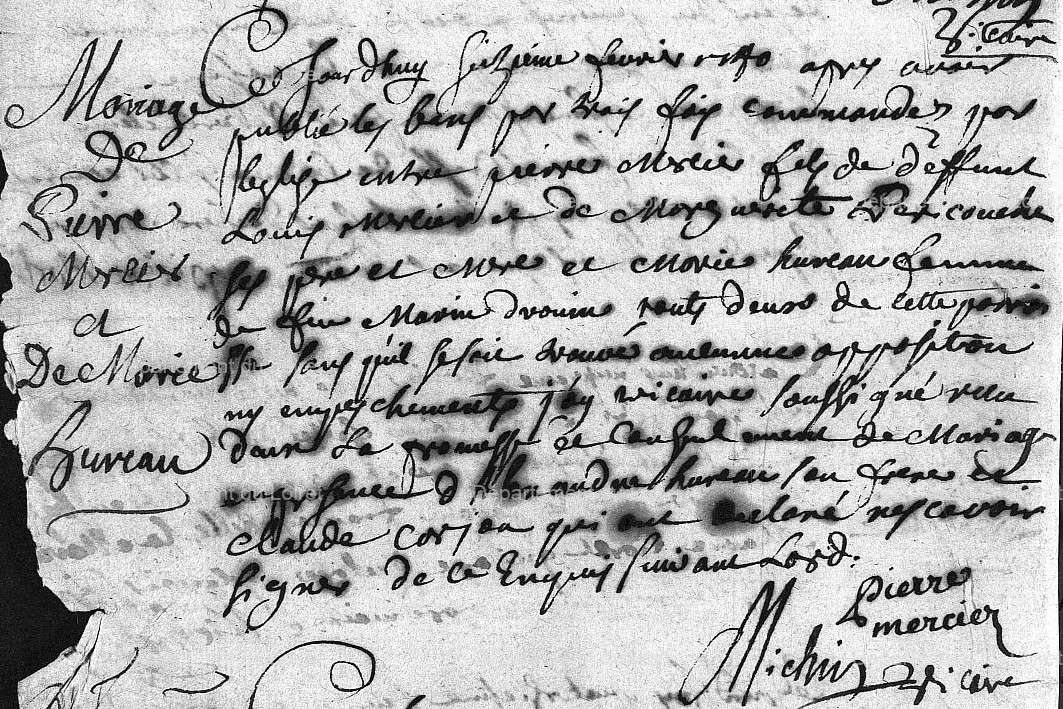 Vicaire
Mariage
De
Pierre
Mercier
et
De Marie
hureau
Ce Jourdhuy seizième febvrier 1740 apres avoir
publié les bans par trois fois commandés par
leglise entre pierre Mercier fils de deffunt
Louis Mercier et de Marguerite
ses père et Mere et Marie hureau femme
de feu Marin drouin touts deux de cette parroi
sse sans quil se soit trouvé aucunne opposition
ny empeschements j'ay vicaire soussigné receu
deux la promesse et Consentement de Mariage
en presence d andre hureau son frere et
Claude corjon qui ont declaré ne scavoir
signer de ce Enquis suivant Lord:
pierre
mercier
Michin vicaire